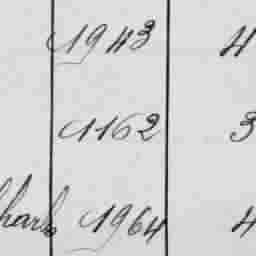 1943 4
1162 3
1964 4